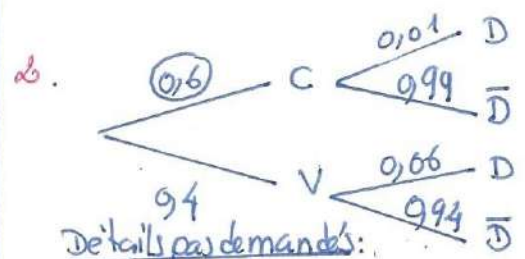 2.
0,6 C 0,01 D
0,99 D̅
0,4 V 0,06 D
0,94 D̅
Détails pas demandés: